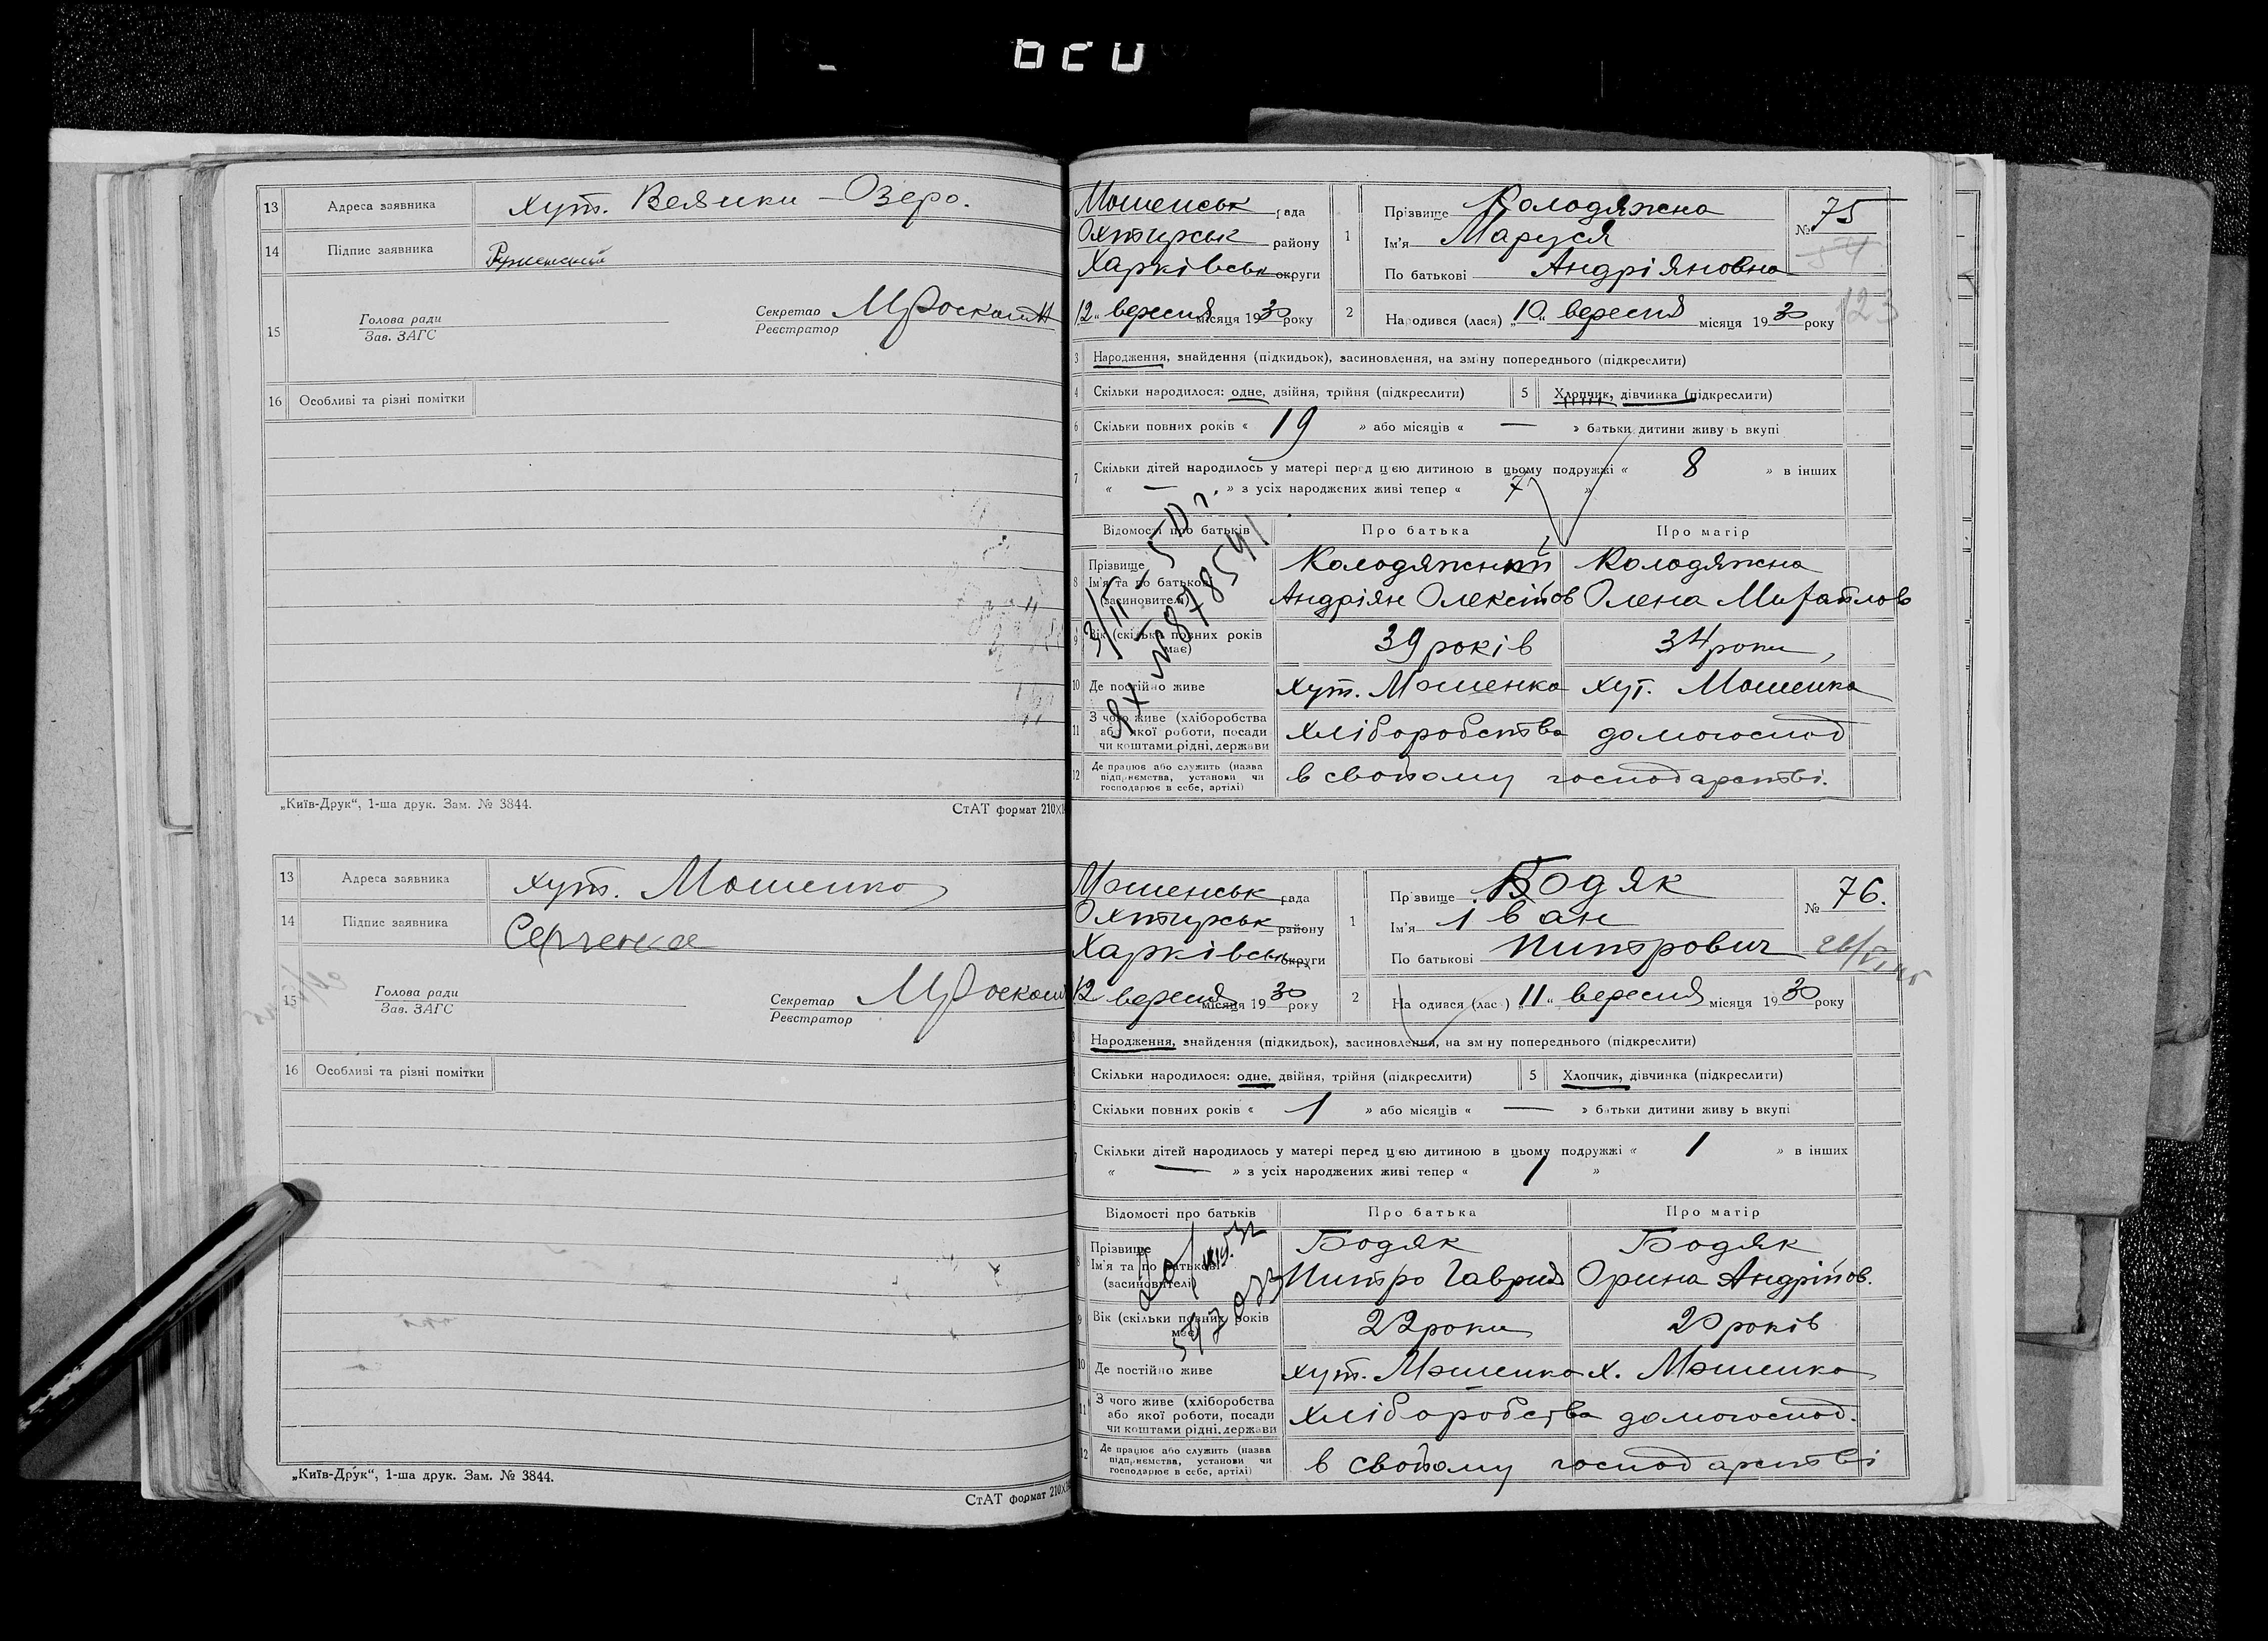 13 Адреса заявника хут. Велики-Озеро.
14 Підпис заявника
15 Голова ради
Зав. ЗАГС
Секретар
Реєстратор
16 Особливі та різні помітки
„Київ-Друк“, 1-ша друк. Зам. № 3844.
СтАТ формат 210
13 Адреса заявника хут. Мошенко
14 Підпис заявника
15 Голова ради
Зав. ЗАГС
Секретар
Реєстратор
16 Особливі та різні помітки
„Київ-Друк“, 1-ша друк. Зам. № 3844.
СтАТ формат 210
Мошенськ рада
Охтирськ району
Харківськ округи
12 „ вересня місяця 1930 року
1 Прізвище Колодяжна
Ім'я Маруся
По батькові Андріяновна
№ 75
54
123
2 Народився (лася) „10“ вересня місяця 1930 року
3 Народження, знайдення (підкидьок), засиновлення, на зміну попереднього (підкреслити)
4 Скільки народилося: одне, двійня, трійня (підкреслити) 5 Хлопчик, дівчинка (підкреслити)
6 Скільки повних років « 19 » або місяців « — » батьки дитини живуть вкупі
7 Скільки дітей народилось у матері перед цією дитиною в цьому подружжі « 8 » в інших
« — » з усіх народжених живі тепер « 7 »
Відомості про батьків Про батька Про матір
8 Прізвище Колодяжний Колодяжна
Ім'я та по батькові
(засновителі) Андріян Олексійов Олена Михайлов
9 Вік (скільки повних років має) 39 років 34 роки
10 Де постійно живе хут. Мошенка хут. Мошенка
11 З чого живе (хліборобства
або якої роботи, посади
чи коштами рідні, держави хліборобства домогоспод
12 Де працює або служить (назва
підприємства, установи чи
господарює в себе, артілі) в свойому господарстві.
Мошенськ рада
Охтирськ району
Харківськ округи
12 вересня місяця 1930 року
1 Прізвище Бодяк
Ім'я Іван
По батькові Митрович
№ 76.
2 Народився (лася) „11“ вересня місяця 1930 року
Народження, знайдення (підкидьок), засиновлення, на зміну попереднього (підкреслити)
Скільки народилося: одне, двійня, трійня (підкреслити) 5 Хлопчик, дівчинка (підкреслити)
Скільки повних років « 1 » або місяців « — » батьки дитини живуть вкупі
Скільки дітей народилось у матері перед цією дитиною в цьому подружжі « 1 » в інших
« — » з усіх народжених живі тепер « 1 »
Відомості про батьків Про батька Про матір
8 Прізвище Бодяк Бодяк
Ім'я та по батькові
(засновителі) Орина Андрійов.
9 Вік (скільки повних років має) 22 роки 20 років
10 Де постійно живе хут. Мошенка х. Мошенка
11 З чого живе (хліборобства
або якої роботи, посади
чи коштами рідні, держави хліборобства домогоспод.
12 Де працює або служить (назва
підприємства, установи чи
господарює в себе, артілі) в свойому господарстві